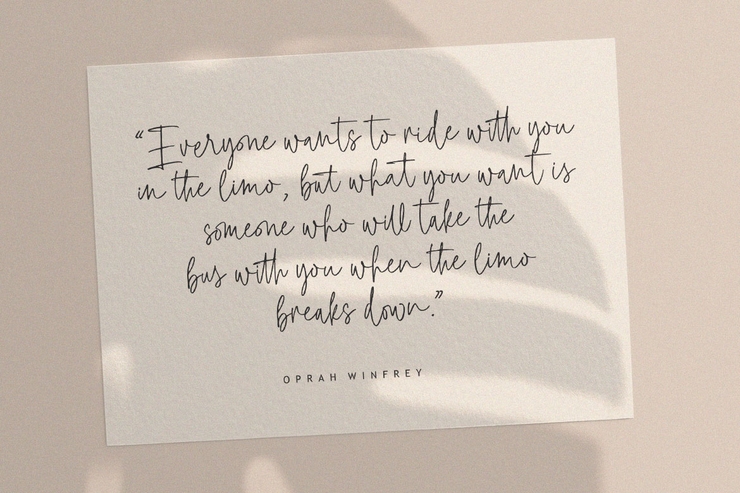 “Everyone wants to ride with you
in the limo, but what you want is
someone who will take the
bus with you when the limo
breaks down.”
OPRAH WINFREY